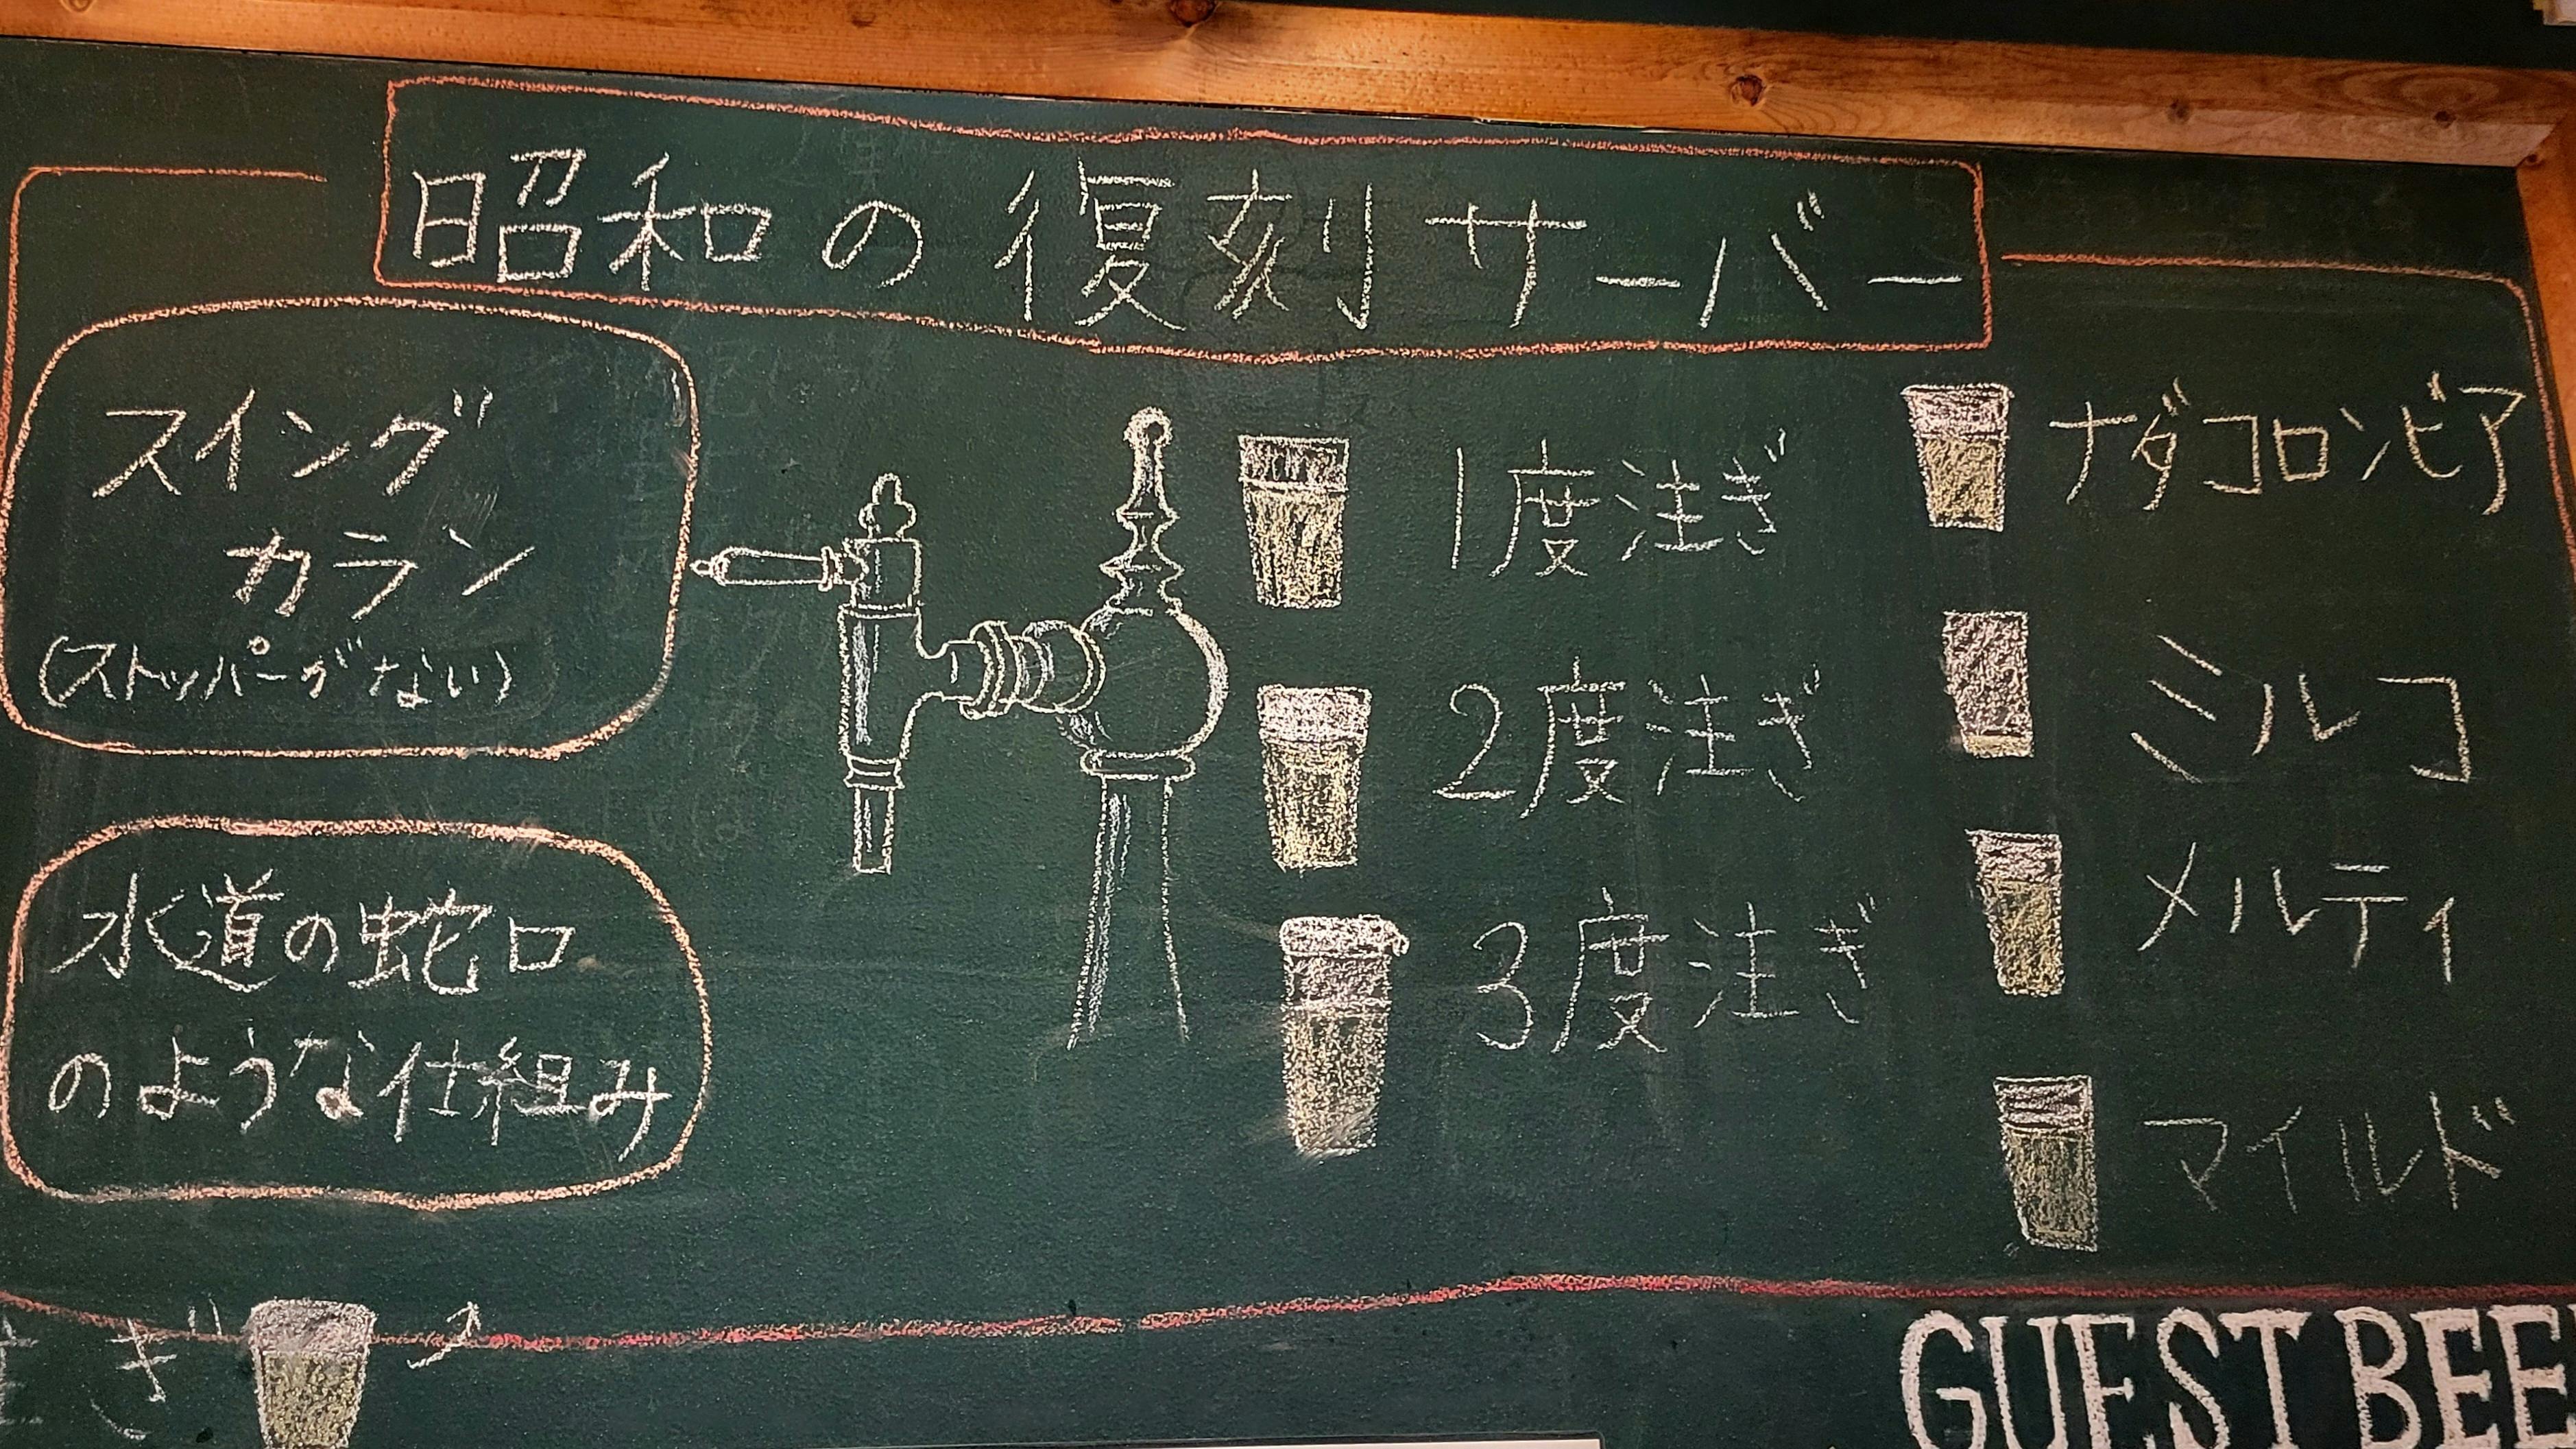 昭和の復刻サーバー
スイング
カラン
(ストッパーがない)
水道の蛇口
のような仕組み
1度注ぎ
2度注ぎ
3度注ぎ
ナダコロンビア
ミルコ
メルティ
マイルド
ぎ
GUEST BEE